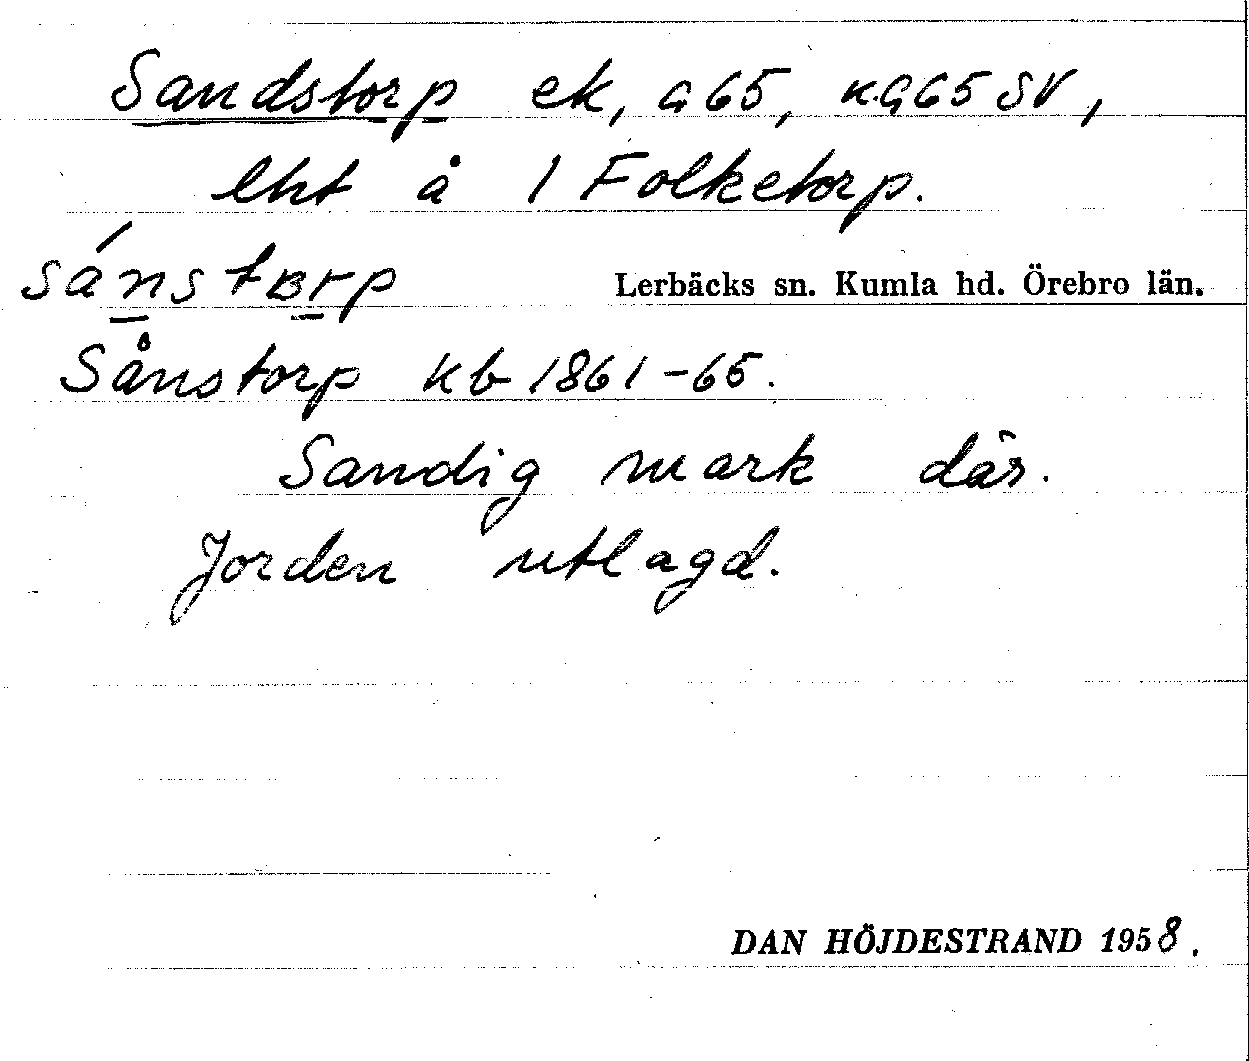 Sandstorp ek, G65, K.G65 SV,
lht å 1 Folketorp.
sánstɒrp
Lerbäcks sn. Kumla hd. Örebro län.
Sånstorp kb 1861-65.
Sandig mark där.
Jorden utlagd.
DAN HÖJDESTRAND 1958.